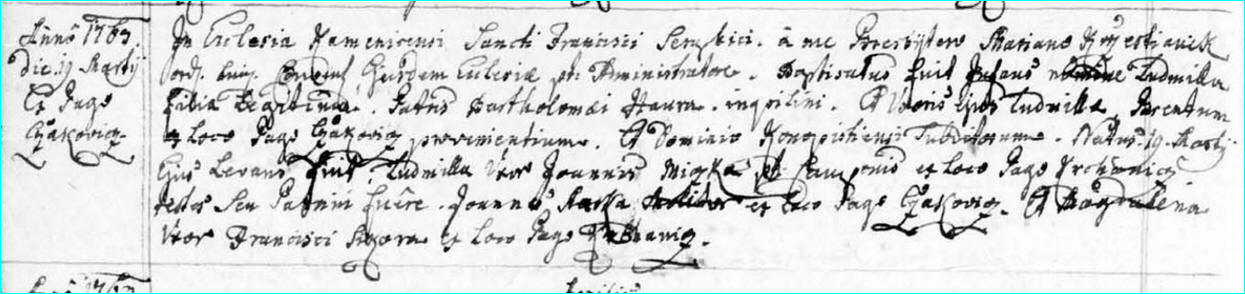 Anno 1763
Die 19 Martij
Ex Pago
Czakovicz
In Ecclesia Kamenicensi Sancti Francisci Seraphici. à me Presbytero Mariano
ord. Ejusdem Ecclesiæ pt. Administratore. Baptisatus fuit Infans nomine Ludmilla
Filia Legitima. Patris Bartholomæi Havra. inquilini. Et Uxoris Ejus Ludmilla, Parentum
ex Loco Pago Czakovicz provenientium. Et Dominio Konopistiensi Subditorum. Natus 19. Martij
Ejus Levans fuit Ludmilla Uxor Joannis et Loco Pago
testes Seu Patrini fuêre. Joannes ex Loco Pago Czakovicz. Et Magdalena
Uxor Francisci ex Loco Pago